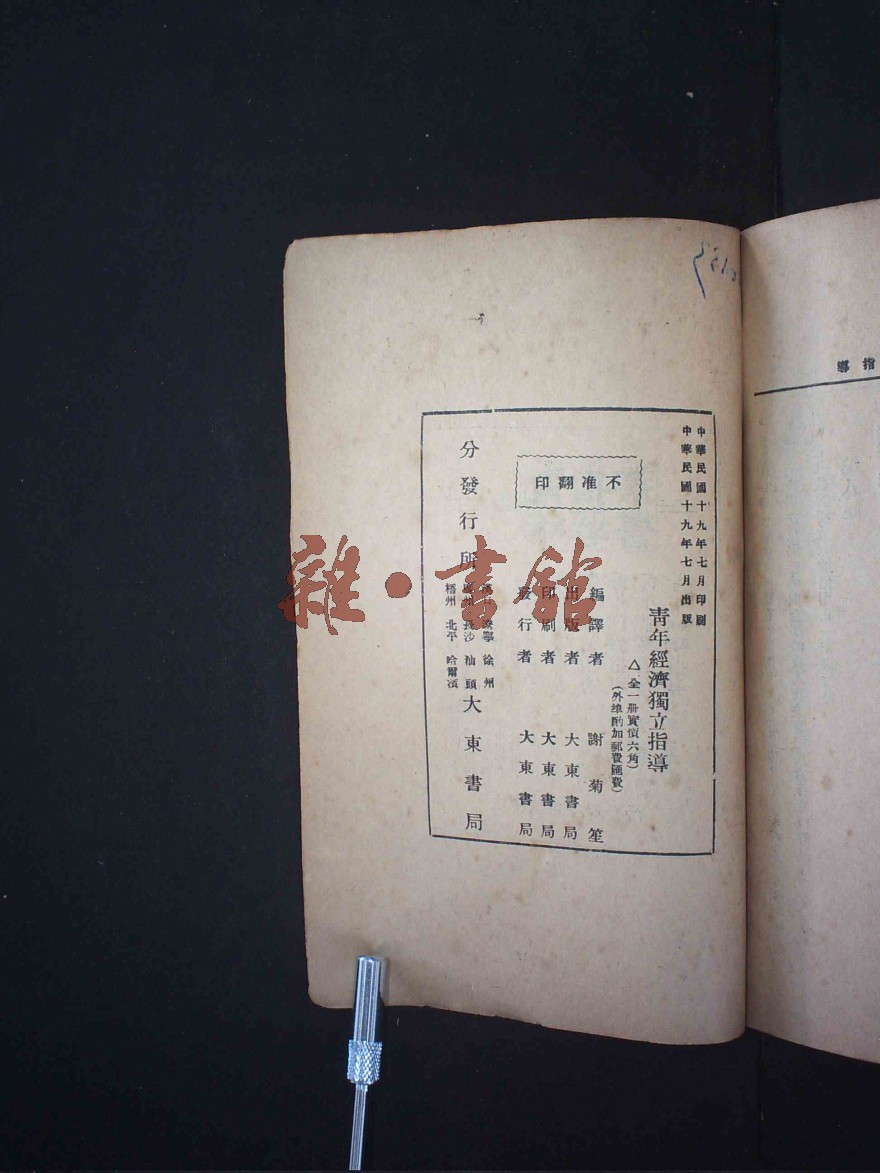 中華民國十九年七月印刷
中華民國十九年七月出版
青年經濟獨立指導
△全一册實價六角
(外埠酌加郵費匯費)
不准翻印
編譯者 謝菊笙
出版者 大東書局
印刷者 大東書局
發行者 大東書局
分發行所
遼寧 徐州
長沙 汕頭
梧州 北平 哈爾濱
大東書局
指導
雜·書館